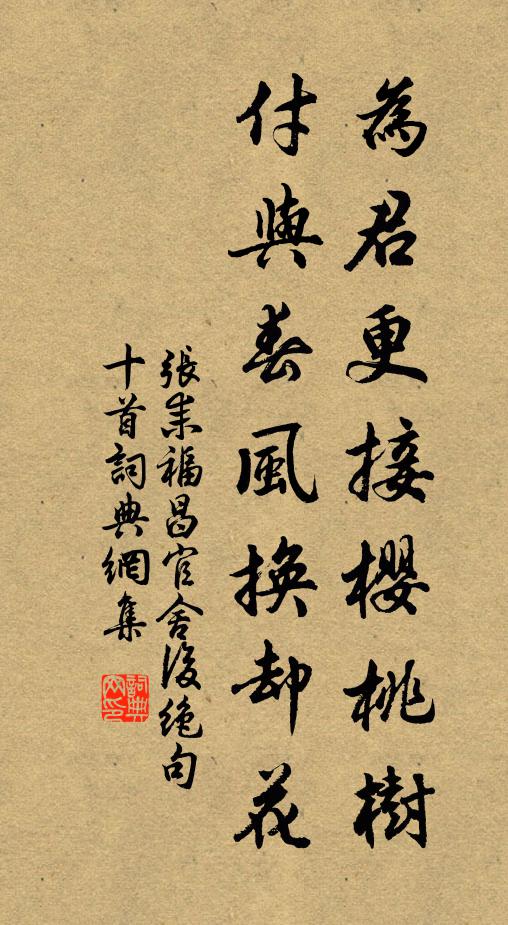 為君更接櫻桃樹
付與春風換却花
張耒福昌官舍後絶句
十首詞典網集
詞典網印